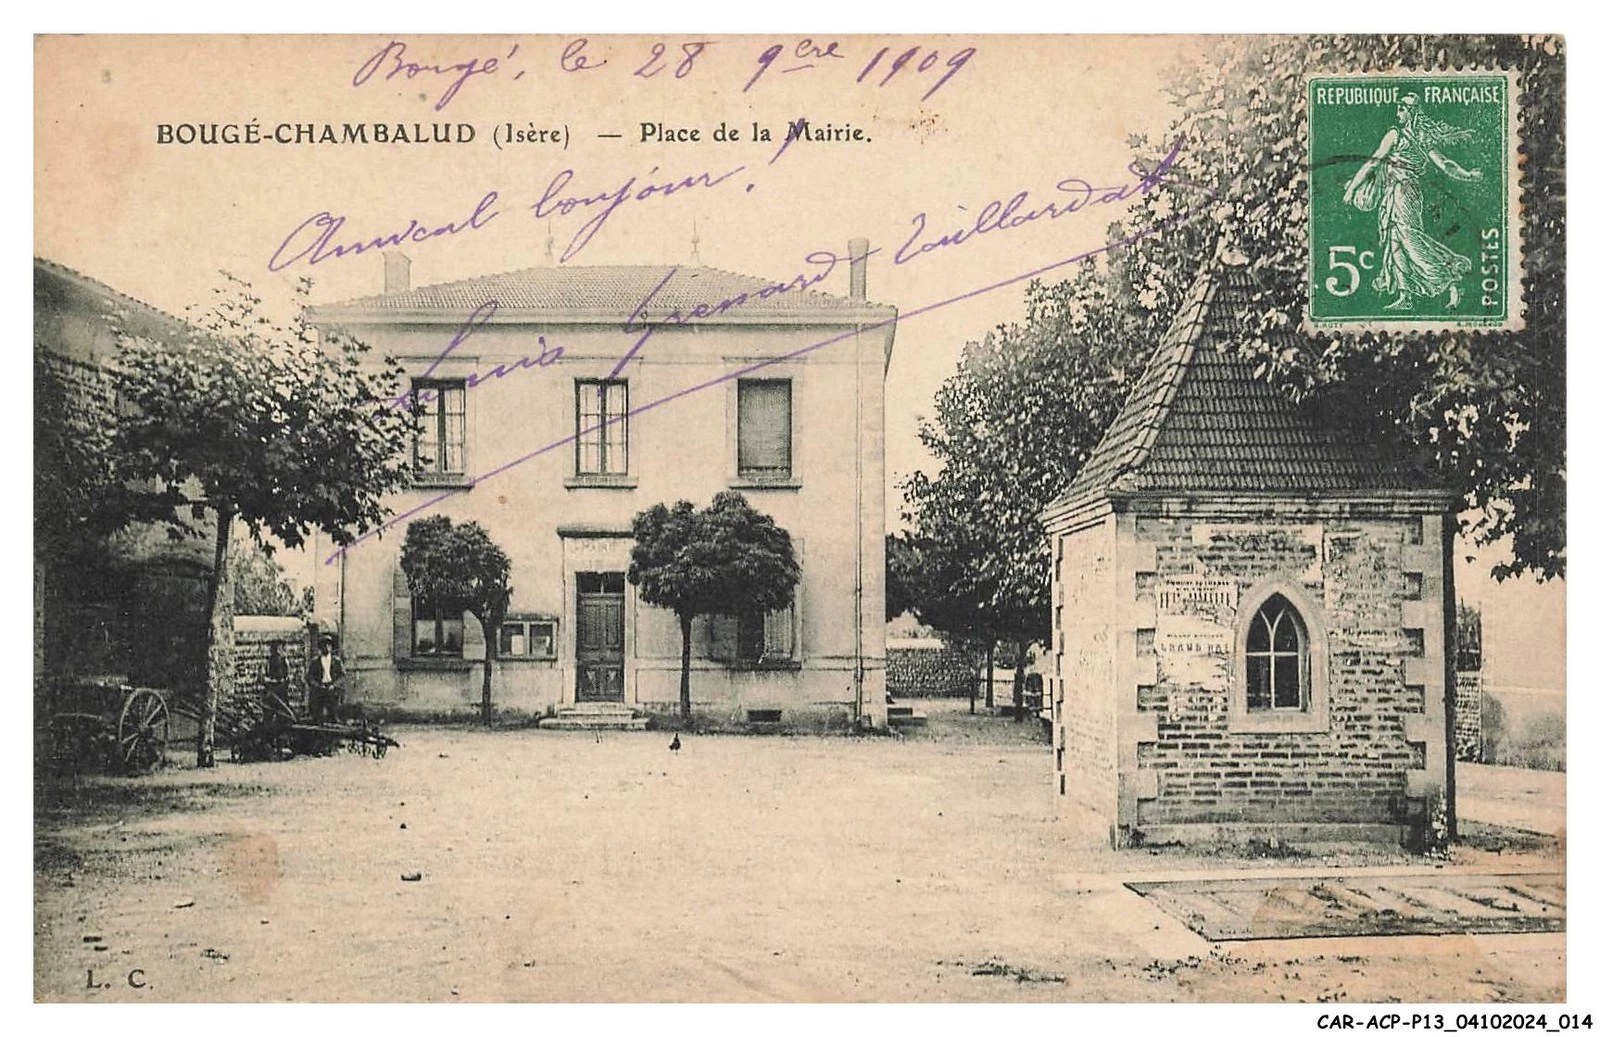 Bougé, le 28 9bre 1909
REPUBLIQUE FRANÇAISE
BOUGÉ-CHAMBALUD (Isère) — Place de la Mairie.
Amical bonjour !
5c
POSTES
Louis Grenard-Taillardat
MAIRIE
GRAND BAL
L. C.
CAR-ACP-P13_04102024_014